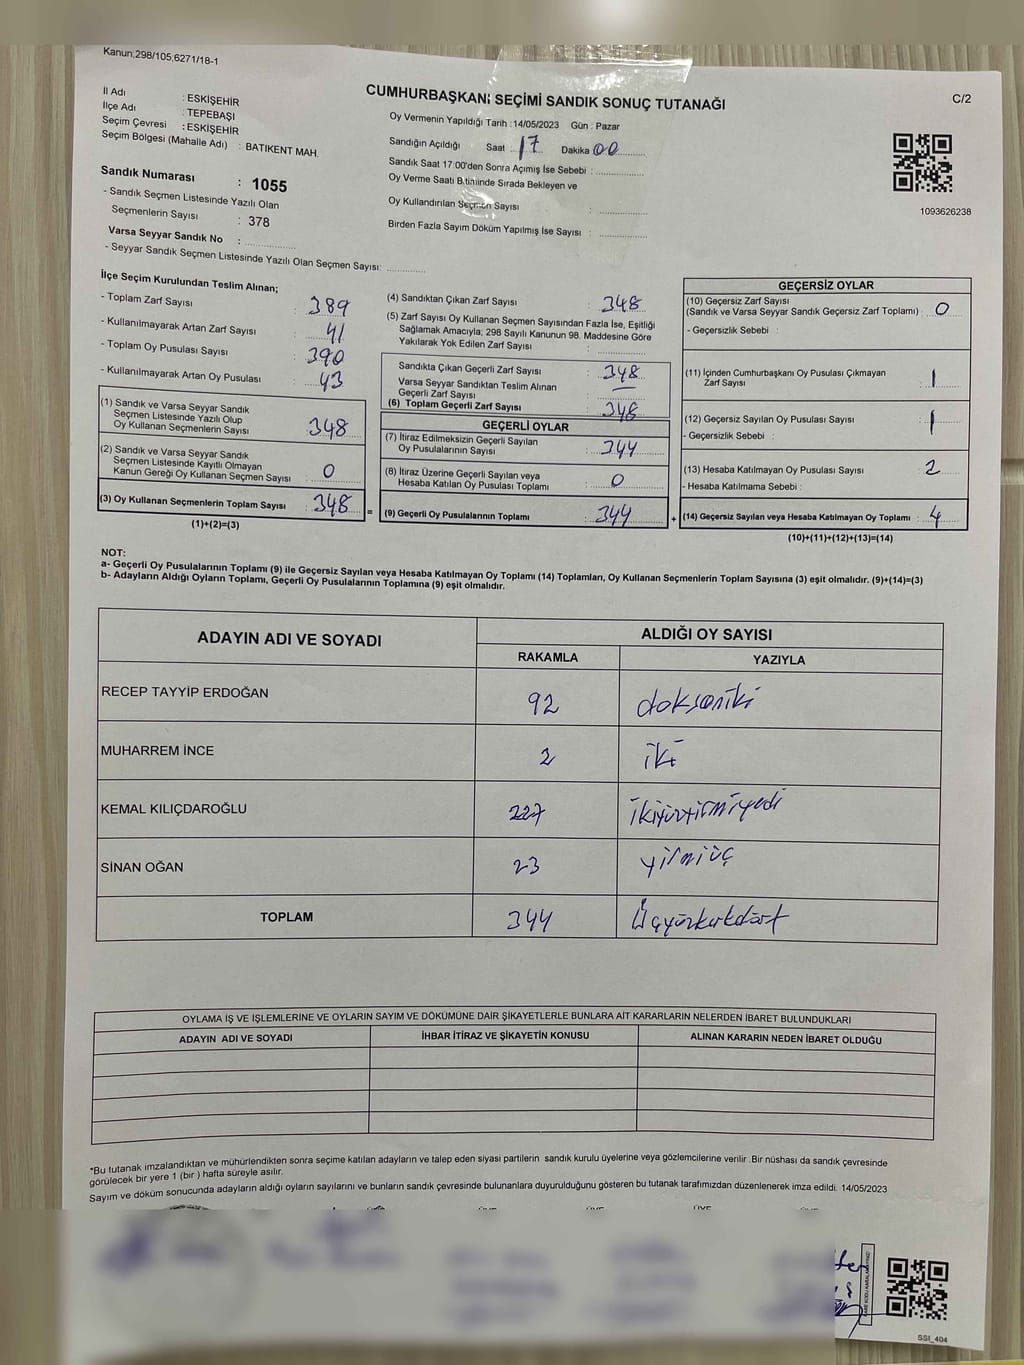 Kanun;298/105;6271/18-1
C/2
İl Adı : ESKİŞEHİR
İlçe Adı : TEPEBAŞI
Seçim Çevresi : ESKİŞEHİR
Seçim Bölgesi (Mahalle Adı) : BATIKENT MAH.
Sandık Numarası : 1055
- Sandık Seçmen Listesinde Yazılı Olan
Seçmenlerin Sayısı : 378
Varsa Seyyar Sandık No :
- Seyyar Sandık Seçmen Listesinde Yazılı Olan Seçmen Sayısı:
CUMHURBAŞKANI SEÇİMİ SANDIK SONUÇ TUTANAĞI
Oy Vermenin Yapıldığı Tarih :14/05/2023 Gün : Pazar
Sandığın Açıldığı Saat : 17 Dakika 00
Sandık Saat 17:00'den Sonra Açımış İse Sebebi :
Oy Verme Saati Bitiminde Sırada Bekleyen ve
Oy Kullandırılan Seçmen Sayısı :
Birden Fazla Sayım Döküm Yapılmış İse Sayısı :
1093626238
İlçe Seçim Kurulundan Teslim Alınan;
- Toplam Zarf Sayısı : 389
- Kullanılmayarak Artan Zarf Sayısı : 41
- Toplam Oy Pusulası Sayısı : 390
- Kullanılmayarak Artan Oy Pusulası : 43
(1) Sandık ve Varsa Seyyar Sandık
Seçmen Listesinde Yazılı Olup
Oy Kullanan Seçmenlerin Sayısı : 348
(2) Sandık ve Varsa Seyyar Sandık
Seçmen Listesinde Kayıtlı Olmayan
Kanun Gereği Oy Kullanan Seçmen Sayısı : 0
(3) Oy Kullanan Seçmenlerin Toplam Sayısı : 348
(1)+(2)=(3)
=
(4) Sandıktan Çıkan Zarf Sayısı : 348
(5) Zarf Sayısı Oy Kullanan Seçmen Sayısından Fazla İse, Eşitliği
Sağlamak Amacıyla; 298 Sayılı Kanunun 98. Maddesine Göre
Yakılarak Yok Edilen Zarf Sayısı :
Sandıkta Çıkan Geçerli Zarf Sayısı : 348
Varsa Seyyar Sandıktan Teslim Alınan
Geçerli Zarf Sayısı : —
(6) Toplam Geçerli Zarf Sayısı : 348
GEÇERLİ OYLAR
(7) İtiraz Edilmeksizin Geçerli Sayılan
Oy Pusulalarının Sayısı : 344
(8) İtiraz Üzerine Geçerli Sayılan veya
Hesaba Katılan Oy Pusulası Toplamı : 0
(9) Geçerli Oy Pusulalarının Toplamı : 344
+
GEÇERSİZ OYLAR
(10) Geçersiz Zarf Sayısı
(Sandık ve Varsa Seyyar Sandık Geçersiz Zarf Toplamı) : 0
- Geçersizlik Sebebi :
(11) İçinden Cumhurbaşkanı Oy Pusulası Çıkmayan
Zarf Sayısı : 1
(12) Geçersiz Sayılan Oy Pusulası Sayısı : 1
- Geçersizlik Sebebi :
(13) Hesaba Katılmayan Oy Pusulası Sayısı : 2
- Hesaba Katılmama Sebebi :
(14) Geçersiz Sayılan veya Hesaba Katılmayan Oy Toplamı : 4
(10)+(11)+(12)+(13)=(14)
NOT:
a- Geçerli Oy Pusulalarının Toplamı (9) ile Geçersiz Sayılan veya Hesaba Katılmayan Oy Toplamı (14) Toplamları, Oy Kullanan Seçmenlerin Toplam Sayısına (3) eşit olmalıdır. (9)+(14)=(3)
b- Adayların Aldığı Oyların Toplamı, Geçerli Oy Pusulalarının Toplamına (9) eşit olmalıdır.
ADAYIN ADI VE SOYADI ALDIĞI OY SAYISI
RAKAMLA YAZIYLA
RECEP TAYYİP ERDOĞAN 92 doksaniki
MUHARREM İNCE 2 iki
KEMAL KILIÇDAROĞLU 227 ikiyüzyirmiyedi
SİNAN OĞAN 23 yirmiüç
TOPLAM 344 Üçyüzkırkdört
OYLAMA İŞ VE İŞLEMLERİNE VE OYLARIN SAYIM VE DÖKÜMÜNE DAİR ŞİKAYETLERLE BUNLARA AİT KARARLARIN NELERDEN İBARET BULUNDUKLARI
ADAYIN ADI VE SOYADI İHBAR İTİRAZ VE ŞİKAYETİN KONUSU ALINAN KARARIN NEDEN İBARET OLDUĞU
*Bu tutanak imzalandıktan ve mühürlendikten sonra seçime katılan adayların ve talep eden siyasi partilerin sandık kurulu üyelerine veya gözlemcilerine verilir .Bir nüshası da sandık çevresinde
görülecek bir yere 1 (bir ) hafta süreyle asılır.
Sayım ve döküm sonucunda adayların aldığı oyların sayılarını ve bunların sandık çevresinde bulunanlara duyurulduğunu gösteren bu tutanak tarafımızdan düzenlenerek imza edildi. 14/05/2023
SSI_404